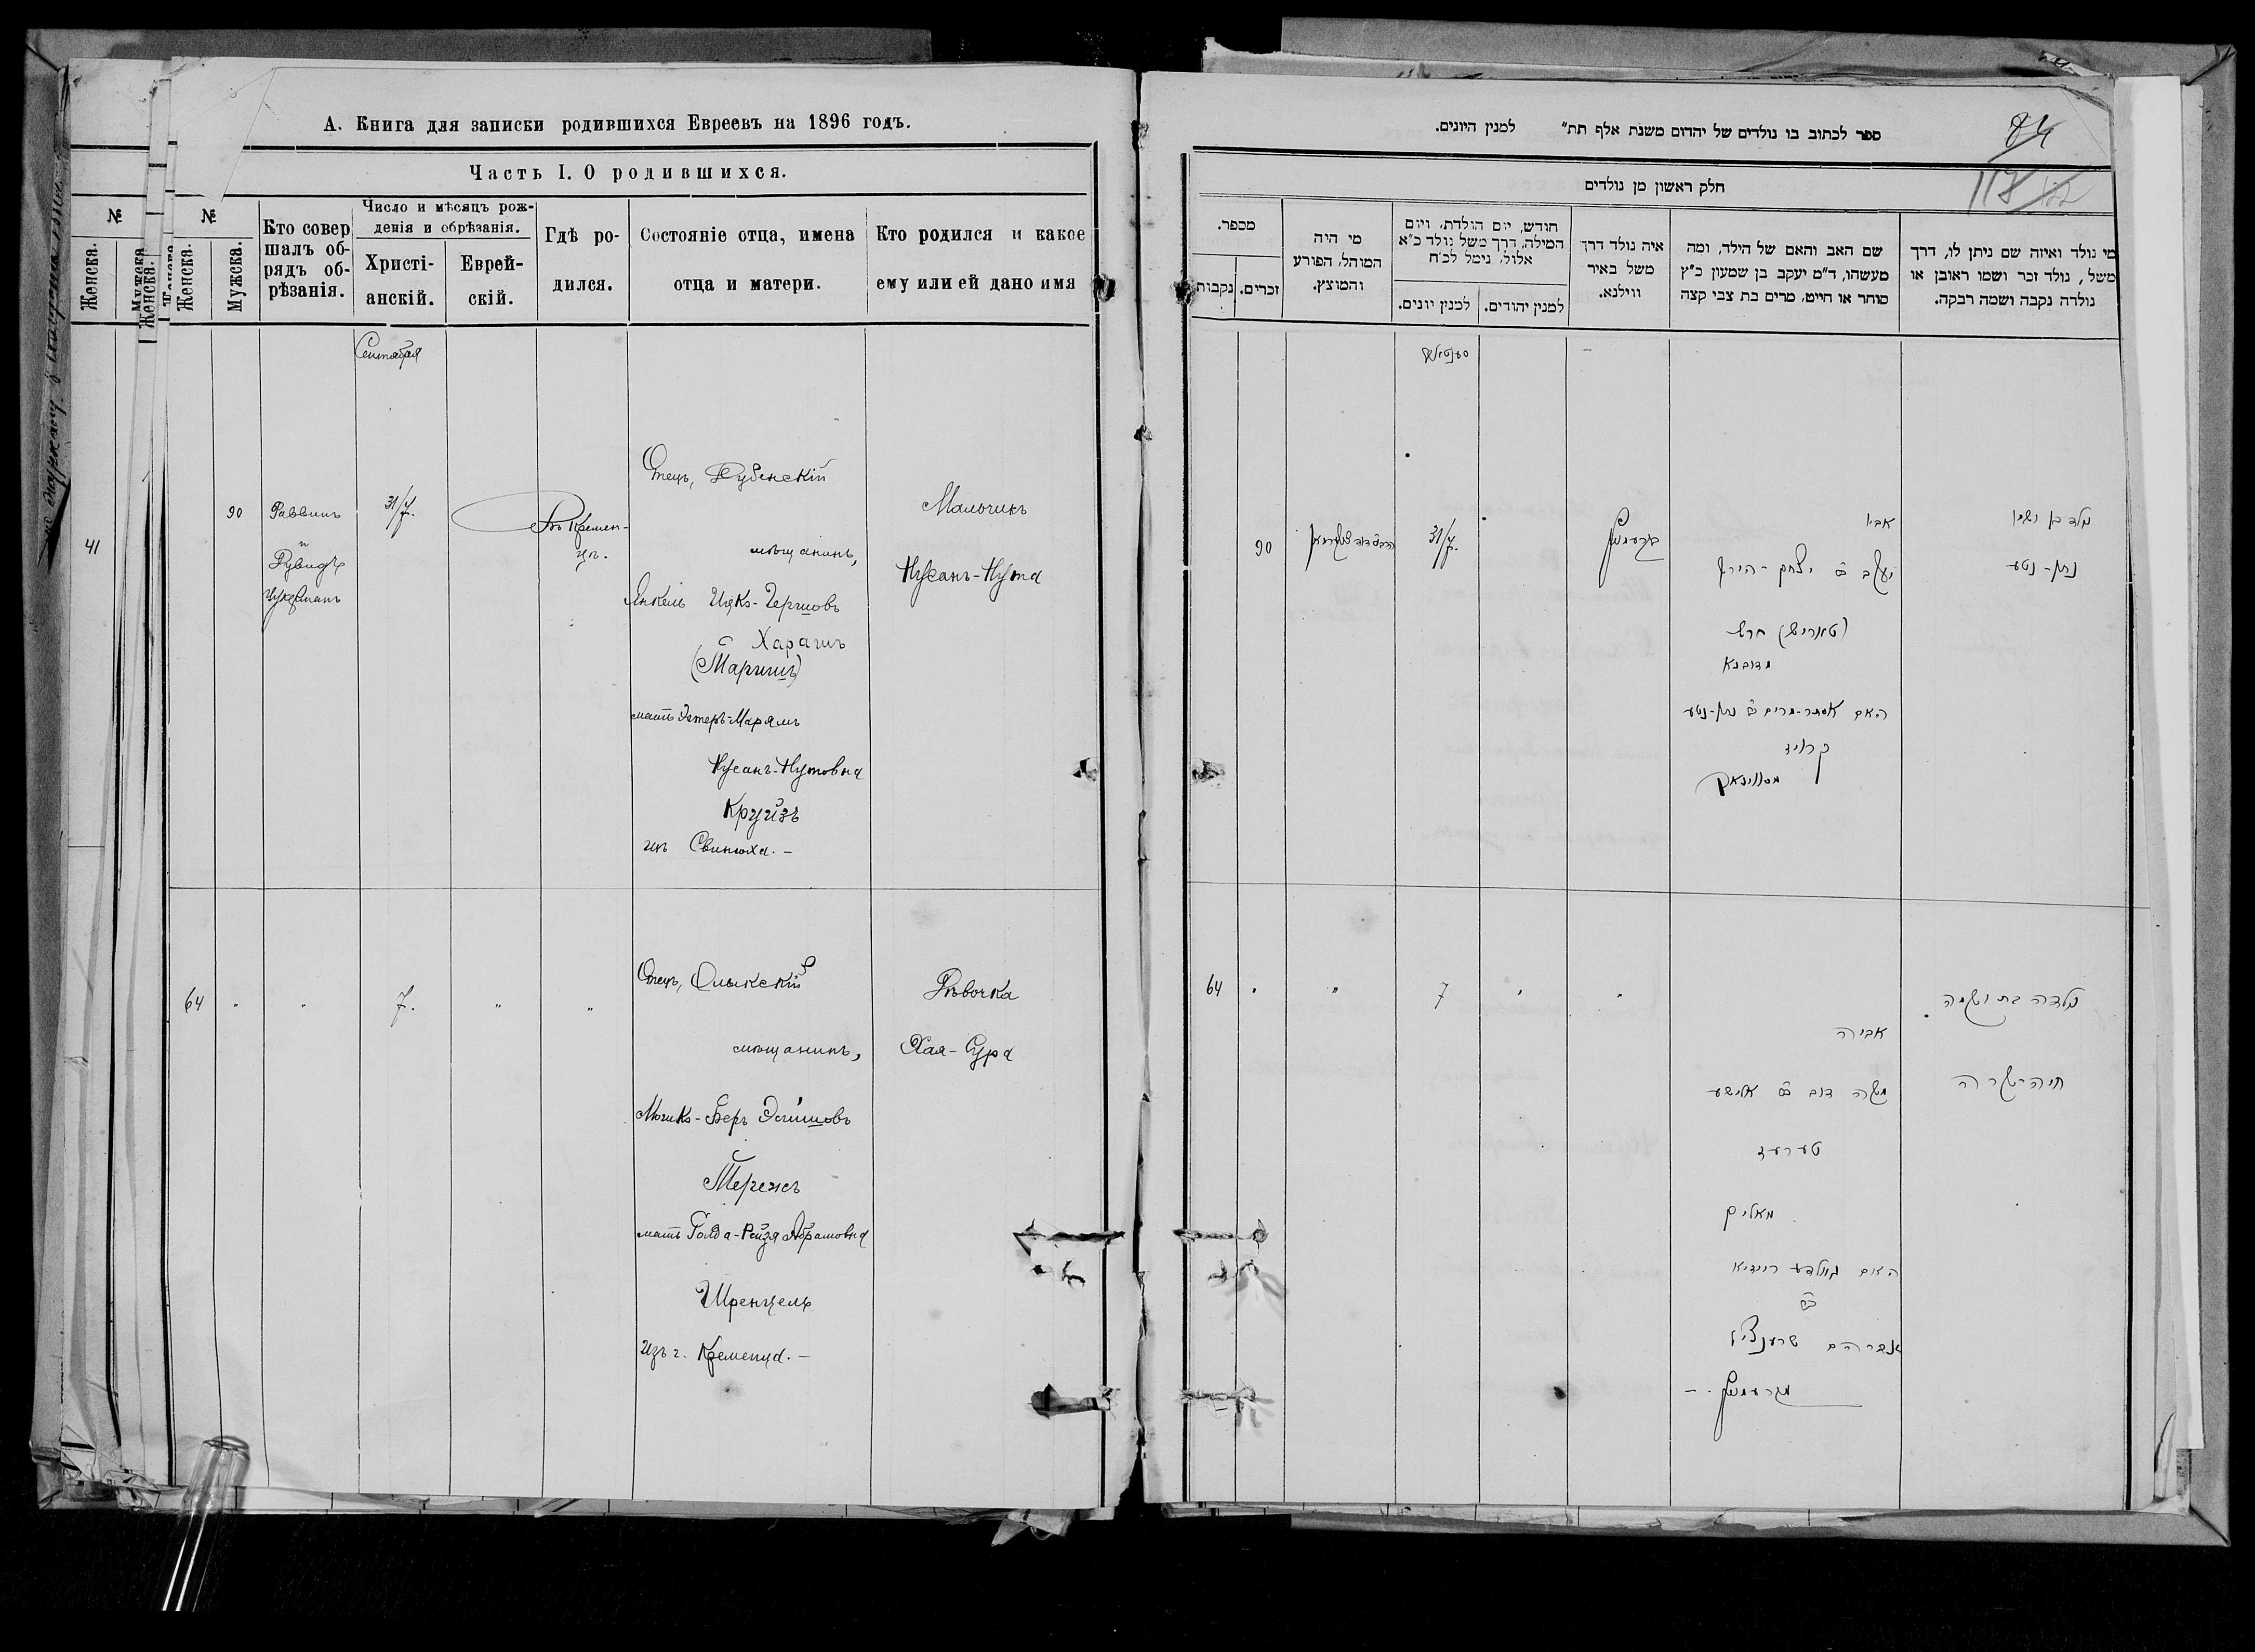 А. Книга для записки родившихся Евреевъ на 1896 годъ.
Часть I. О родившихся.
№
Женска.
Мужска.
Женска.
№
Женска.
Мужска.
Кто совершалъ об-
рядъ об-
рѣзанія.
Число и мѣсяцъ рож-
денія и обрѣзанія.
Христі-
анскій.
Еврей-
скій.
Гдѣ ро-
дился.
Состояніе отца, имена
отца и матери.
Кто родился и какое
ему или ей дано имя
Сентября
41
90
Раввинъ
и
Дувидъ
Цукерманъ
31/7.
Въ Кремен-
цѣ.
Отецъ, Дубенскій
мѣщанинъ,
Янкель Ицко-Гершовъ
Харашъ
мать Эстеръ-Марямъ
Нусанъ-Нутовна
Круйзъ
изъ Свинюха. –
Мальчикъ
Нусанъ-Нута
64 " " 7. " "
Отецъ, Олыкскій
мѣщанинъ,
Мошко-Беръ
Тережъ
мать Голда-Рейзя Абрамовна
Шренцель
Изъ г. Кременца. –
Дѣвочка
Хая-Сура
84
118
ספר לכתוב בו נולדים של יהדום משנת אלף תת״ למנין היונים.
חלק ראשון מן נולדים
מספר.
נקבות
זכרים.
מי היה
המוהל, הפורע
והמוצץ.
חודש, יום הולדת, ויום
המילה, דרך משל נולד כ״א
אלול, נימל לכ״ח
למנין יונים.
למנין יהודים.
איה נולד דרך
משל באיר
ווילנא.
שם האב והאם של הילד, ומה
מעשהו, ד״מ יעקב בן שמעון כ״ץ
סוחר או חייט, מרים בת צבי קצה
מי נולד ואיזה שם ניתן לו, דרך
משל, נולד זכר ושמו ראובן או
נולדה נקבה ושמה רבקה.
90
31/7.
אביו
יעקב ב״ר יצחק-הירש
(טאריש) חרש
מדובנא
האם אסתר-מרים ב״ר נתן-נטע
קרויז
נולד בן ושמו
נתן-נטע
64 " " 7 " "
אביה
משה דוב ב״ר אלישע
טערעז
מאליק
האם גאלדע רייזיא
ב״ר
אברהם שרענציל
נולדה בת ושמה
חיה-שרה